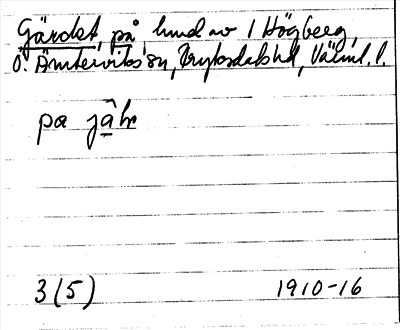 Gärdet, på, lund av 1 Högberg,
Ö. Ämterviks sn, Fryksdals hd, Värml. l.
pa jâ̠hr
3(5) 1910-16